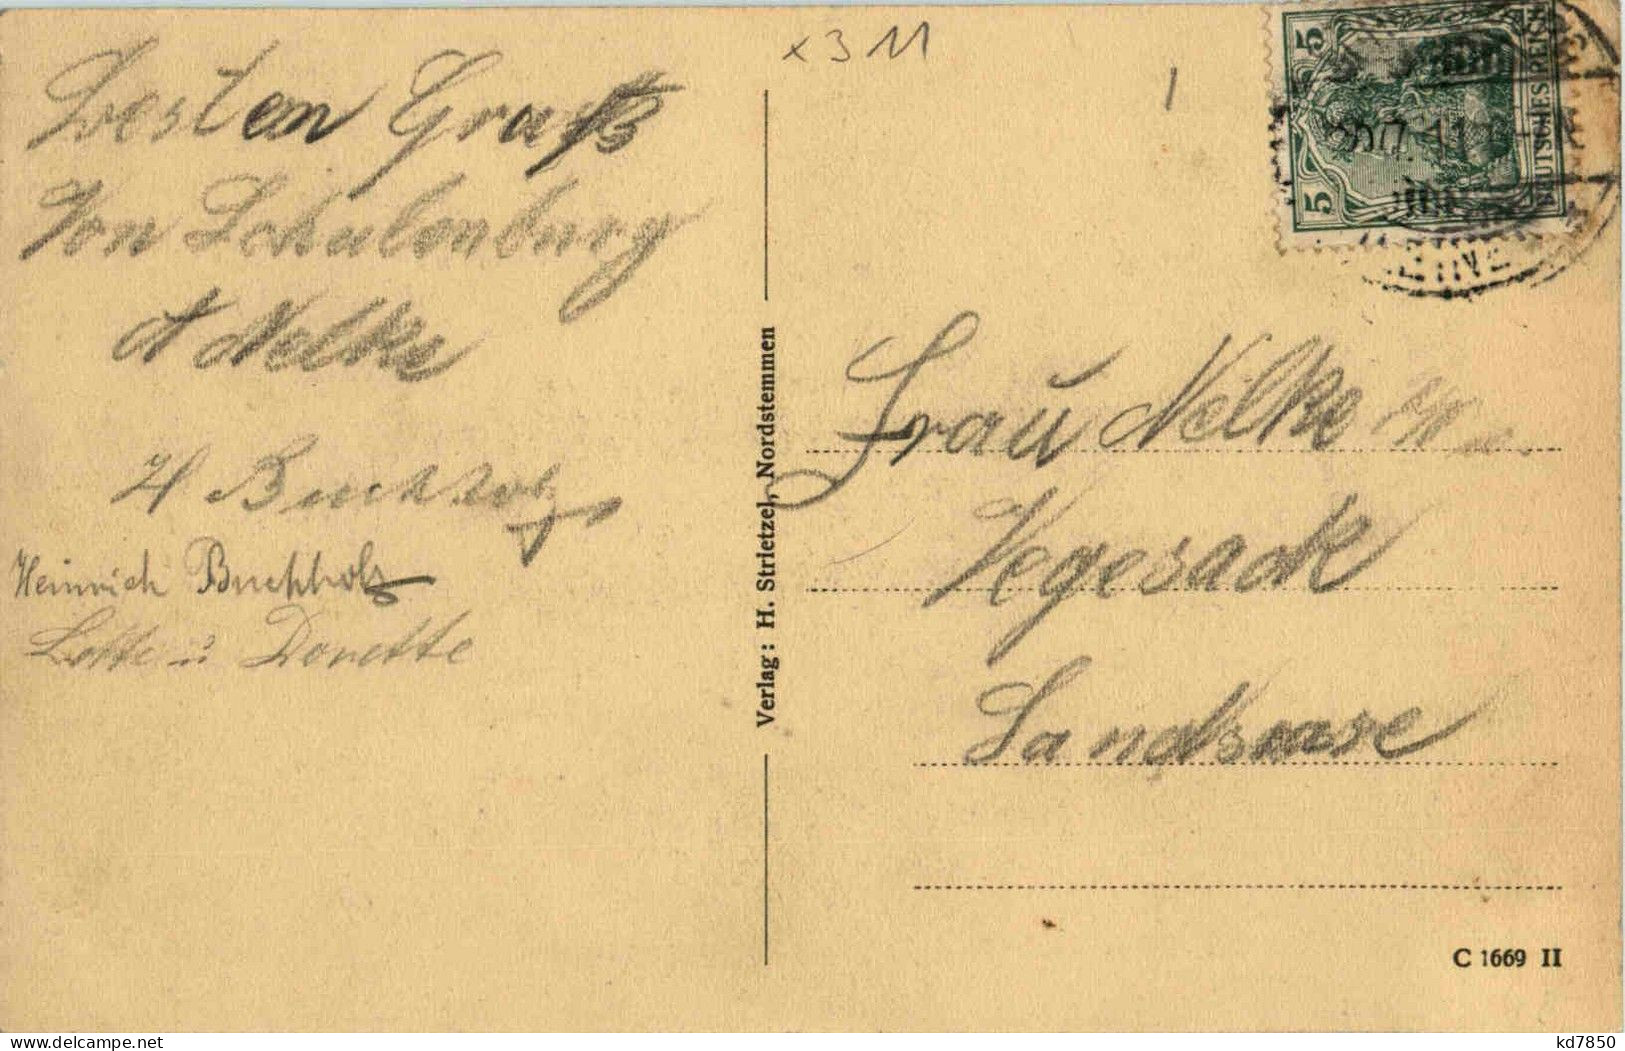 x 3 11
Besten Gruß
Von Schulenburg
A Nelke
H Buchholz
Heinrich Buchholz
Lotte u Dorette
Verlag: H. Strietzel, Nordstemmen
5
5
DEUTSCHES REICH
Frau Nelke
Vegesack
C 1669 II
kd7850